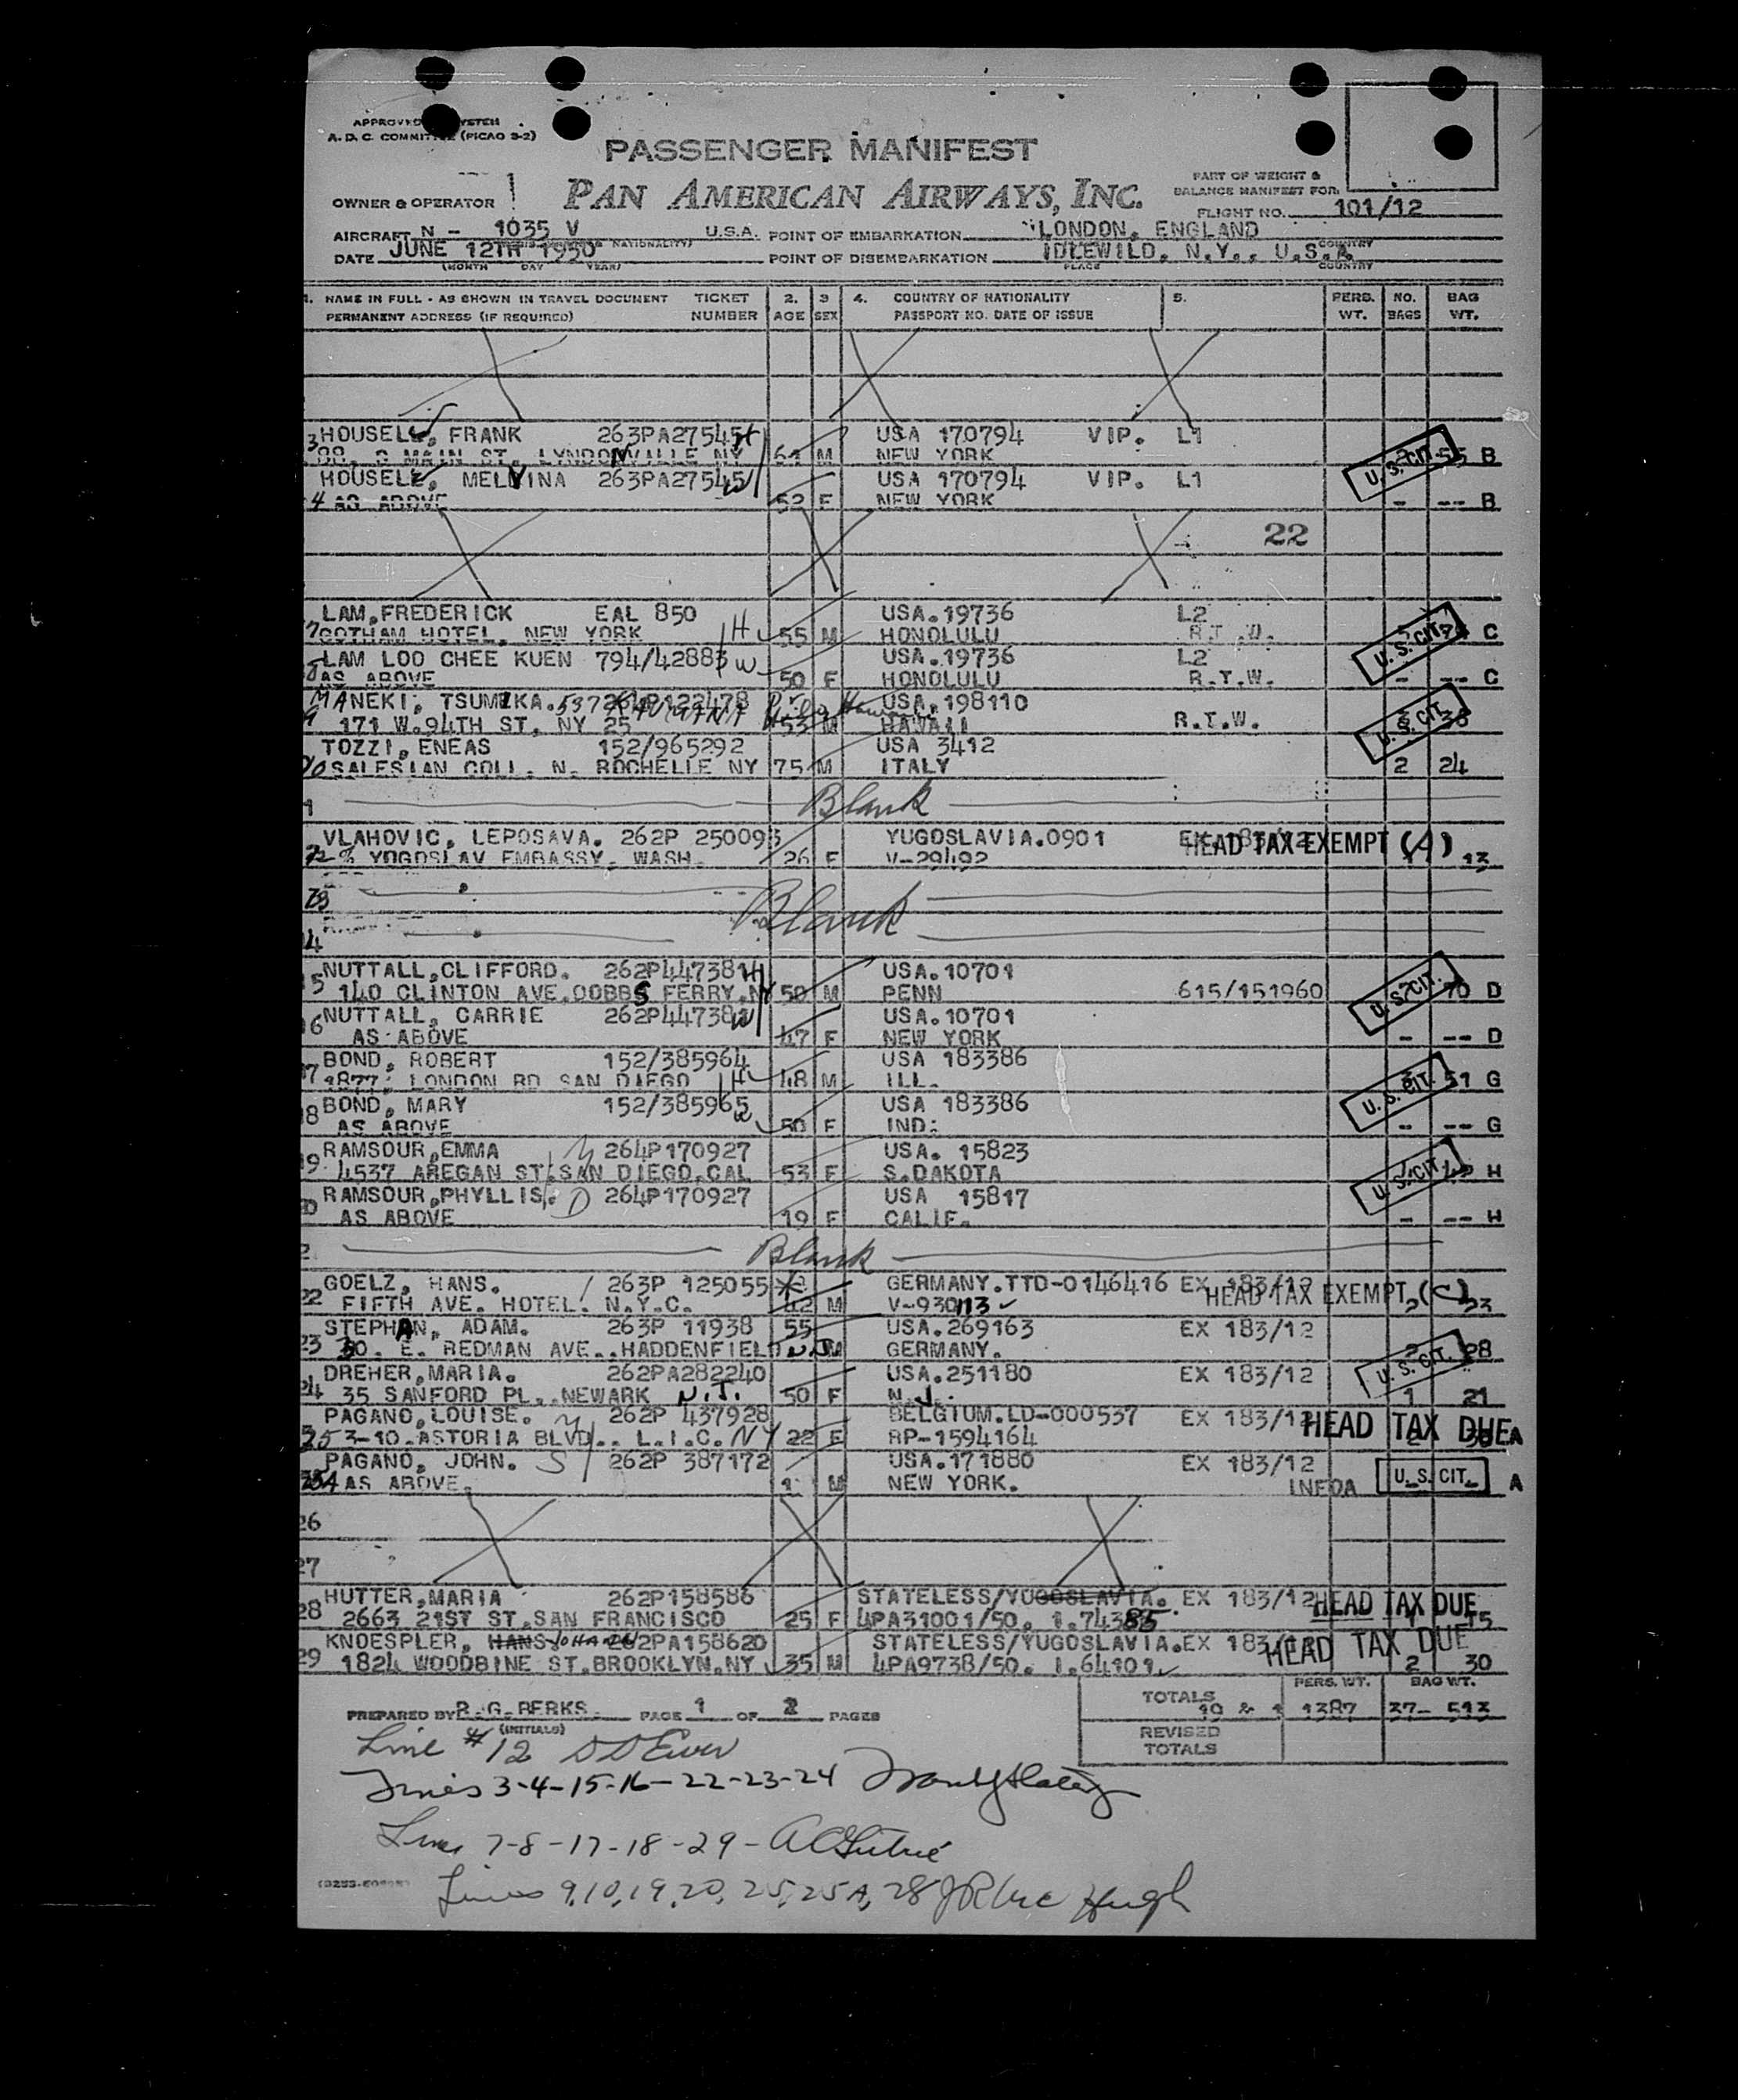 APPROVED SYSTEM
A. D. C. COMMITTEE (PICAO 3-2)
PASSENGER MANIFEST
PAN AMERICAN AIRWAYS, INC.
OWNER & OPERATOR
PART OF WEIGHT &
BALANCE MANIFEST FOR
FLIGHT NO. 101/12
AIRCRAFT N - 1035 V U.S.A. POINT OF EMBARKATION LONDON, ENGLAND
DATE JUNE 12TH 1950 POINT OF DISEMBARKATION IDLEWILD, N.Y., U.S.A.
(MONTH DAY YEAR) PLACE COUNTRY
1. NAME IN FULL - AS SHOWN IN TRAVEL DOCUMENT TICKET 2. 3 4. COUNTRY OF NATIONALITY 5. PERS. NO. BAG
PERMANENT ADDRESS (IF REQUIRED) NUMBER AGE SEX PASSPORT NO. DATE OF ISSUE WT. BAGS WT.
3 HOUSEL, FRANK 263PA27545 H USA 170794 VIP. L1
88. S MAIN ST. LYNDONVILLE NY 61 M NEW YORK U.S. CIT. 55 B
HOUSEL, MELVINA 263PA27545 W USA 170794 VIP. L1
4 AS ABOVE 52 F NEW YORK - -- B
22
LAM, FREDERICK EAL 850 USA.19736 L2
7 GOTHAM HOTEL, NEW YORK H 55 M HONOLULU R.T.W. U.S. CIT. C
LAM LOO CHEE KUEN 794/42883 W USA.19736 L2
8 AS ABOVE 50 F HONOLULU R.T.W. - -- C
MANEKI, TSUMIKA. 264P122478 USA.198110
9 171 W.94TH ST, NY 25 53 M HAWAII R.T.W. U.S. CIT. 38
TOZZI, ENEAS 152/965292 USA 3412
10 SALESIAN COLL. N. ROCHELLE NY 75 M ITALY 2 24
Blank
VLAHOVIC, LEPOSAVA. 262P 250093 YUGOSLAVIA.0901 EX 183/12 HEAD TAX EXEMPT (A)
12 % YOGOSLAV EMBASSY, WASH. 26 F V-29492 13
13
Blank
14
NUTTALL, CLIFFORD. 262P447381 H USA.10701
15 140 CLINTON AVE. DOBBS FERRY. NY 50 M PENN 615/151960 U.S. CIT. 70 D
16 NUTTALL, CARRIE 262P447381 W USA.10701
AS ABOVE 47 F NEW YORK - -- D
BOND, ROBERT 152/385964 USA 183386
17 LONDON RD SAN DIEGO H 48 M ILL. U.S. CIT. 51 G
18 BOND, MARY 152/385965 W USA 183386
AS ABOVE 50 F IND. - -- G
RAMSOUR, EMMA M 264P170927 USA. 15823
19 4537 AREGAN ST. SAN DIEGO, CAL 53 F S.DAKOTA U.S. CIT. H
RAMSOUR, PHYLLIS. D 264P170927 USA 15817
20 AS ABOVE 19 F CALIF. - -- H
Blank
GOELZ, HANS. 263P 125055 GERMANY.TTD-0146416 EX 183/12
22 FIFTH AVE. HOTEL. N.Y.C. 42 M V-930113 HEAD TAX EXEMPT (C) 2 23
STEPHAN, ADAM. 263P 11938 55 USA.269163 EX 183/12
23 30. E. REDMAN AVE., HADDENFIELD N.J. M GERMANY. 2 28
DREHER, MARIA. 262PA282240 USA.251180 EX 183/12 U.S. CIT.
24 35 SANFORD PL., NEWARK N.J. 50 F N.J. 1 21
PAGANO, LOUISE. M 262P 437928 BELGIUM.LD-000537 EX 183/12 HEAD TAX DUE
25 3-10.ASTORIA BLVD., L.I.C. NY 22 F RP-1594164 A
PAGANO, JOHN. S 262P 387172 USA.171880 EX 183/12
25A AS ABOVE. 1 M NEW YORK. U.S. CIT. A
26
27
HUTTER, MARIA 262P158586 STATELESS/YUGOSLAVIA. EX 183/12 HEAD TAX DUE
28 2663 21ST ST. SAN FRANCISCO 25 F 4PA31001/50. 1 15
KNOESPLER, HANS JOHANN 262PA158620 STATELESS/YUGOSLAVIA. EX 183/12 HEAD TAX DUE
29 1824 WOODBINE ST. BROOKLYN. NY 35 M 4PA9738/50. 1.64101 2 30
PERS. WT. BAG WT.
TOTALS 19 & 1 1387 37- 513
PREPARED BY R. G. BERKS. PAGE 1 OF 2 PAGES
(INITIALS)
REVISED
TOTALS
Line #12
Lines 3-4-15-16-22-23-24
Lines 7-8-17-18-29-
Lines 9, 10, 19, 20, 25, 25A, 28